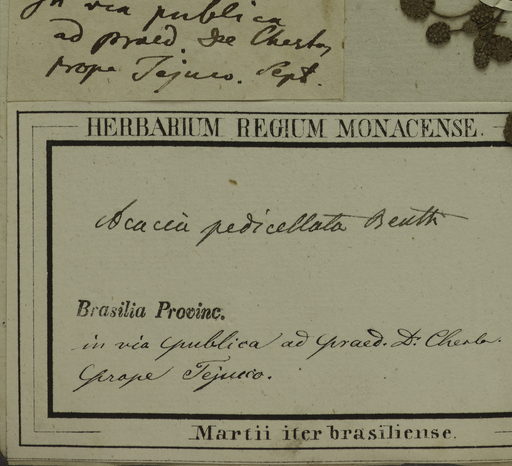 In via publica
ad praed. De Cherto
prope Tejuco. Sept.
HERBARIUM REGIUM MONACENSE.
Acacia pedicellata Benth
Brasilia Provinc.
in via publica ad praed. Dr
prope Tejuco.
Martii iter brasiliense.